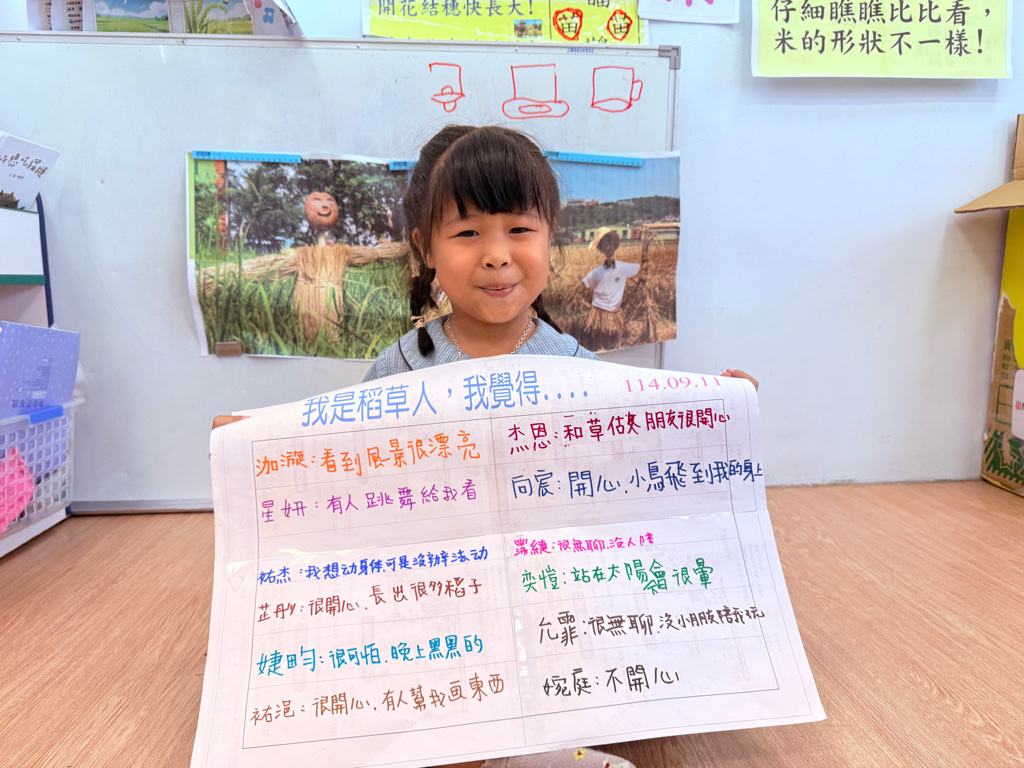 開花結穗快長大!
苗
苗
仔細瞧瞧比比看,
米的形狀不一樣!
我是稻草人,我覺得....
114.09.11
泇漩:看到風景很漂亮
星妍:有人跳舞給我看
祐杰:我想动身体可是沒辦法动
芷彤:很開心、長出很多稻子
婕昀:很可怕、晚上黑黑的
祐浥:很開心、有人幫我画東西
杰恩:和草估人朋友很開心
向宸:開心、小鳥飛到我的身上
很無聊、沒人陪
奕愷:站在太陽會很暈
允霏:很無聊、沒小朋友陪我玩
婉庭:不開心